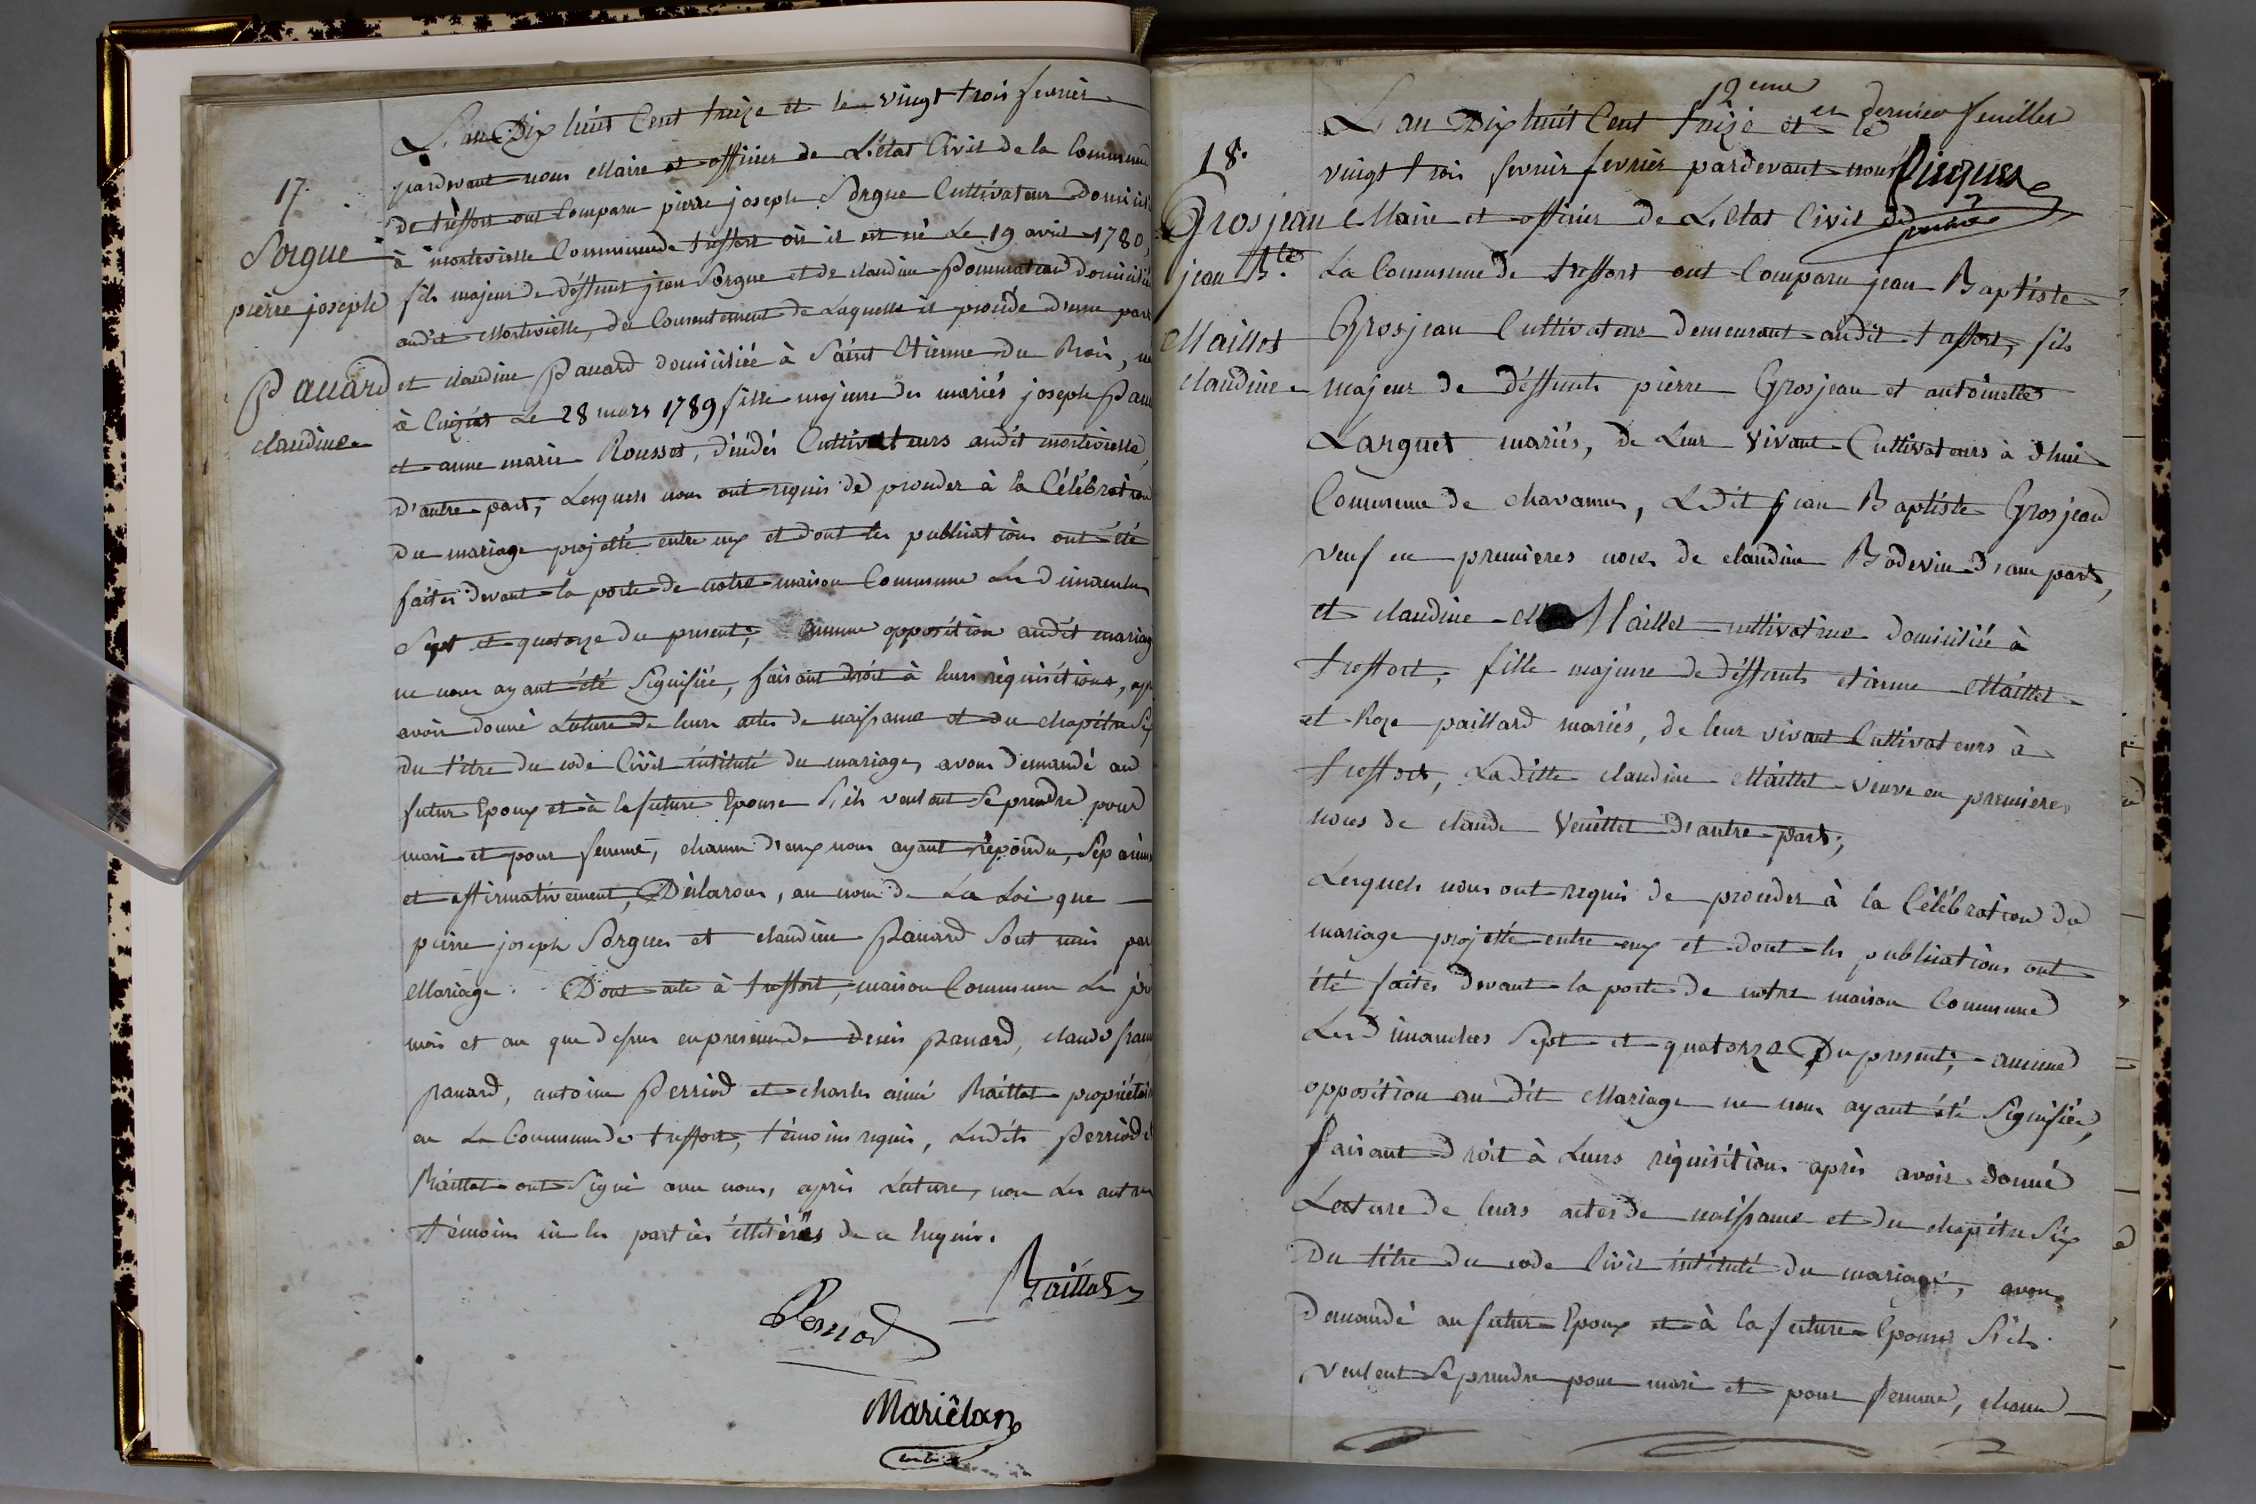 17.
Sorgue
pierre joseph
Pauard
claudine
L'an Dix huit Cent treize et le vingt trois fevrier
pardevant nous Maire et officier de L'état Civil de la Commune
de treffort ont Comparu pierre joseph Sorgue Cultivateur Domicili
à montevielle Commune de treffort où il est né Le 19 avril 1780,
fils majeur de déffunt jean Sorgue et de claudine domicilié
audit du Consentement de Laquelle il procède d'une part
et claudine Pauard domiciliée à Saint Etienne du Bois, né
à Cuizial Le 28 mars 1789 fille majeure des mariés joseph Paua
et anne marie Rousset, d'índés Cultivateurs audit montevielle,
d'autre part, Lesquels nous ont requis de proceder à la Célébration
du mariage projetté entre eux et dont les publications ont été
faites devant la porte de notre maison Commune Les dimanches
Sept et quatorze du present; aucune opposition audit mariage
ne nous ayant été Signifiée, faisant droit à leurs réquisitions, apr
avoir donné Lecture de leurs actes de naissance et du chapitre Six
du titre du code Civil intitulé du mariage, avons demandé au
futur Epoux et à la future Epouse S'ils veulent Se prendre pour
mari et pour femme, chacun d'eux nous ayant répondu, Séparém
et affirmativement, Déclarons, au nom de La Loi que
pierre joseph Sorgue et claudine Pauard Sont unis par
Mariage. Dont acte à treffort, maison Commune Les jour
mois et an que dessus en presence de Denis Pauard, claude fran
Pauard, antoine Perriod et charles aimé Raillat propriétai
en La Commune de treffort, témoins requis, Lesdits Perriod et
Raillat ont Signé avec nous, après Lecture, non Les autres
témoins ni les parties illitérées de ce Enquis.
Raillat
Perriod
Mariêlan
18.
Grosjean
jean Bte.
Maillet
claudine
12eme et dernier feuillet
L'an Dix huit Cent treize et le
vingt trois fevrier fevrier pardevant nous
Maire et officier de L'état Civil de
La Commune de treffort ont Comparu jean Baptiste
Grosjean Cultivateur demeurant audit taffort, fils
majeur de déffunts pierre Grosjean et antoinette
Larguet mariés, de Leur vivant Cultivateurs à dhui
Commune de chavannes, Ledit jean Baptiste Grosjean
veuf en premieres noces de claudine Bodevin d'une part,
et claudine Maillet cultivatrice domiciliée à
treffort, fille majeure de déffunts etienne Maillet
et Roze paillard mariés, de leur vivant Cultivateurs à
treffort, Laditte claudine Maillet veuve en premieres
noces de claude Veuillet d'autre part;
Lesquels nous ont requis de proceder à la Célébration du
mariage projetté entre eux et dont les publications ont
été faites devant la porte de notre maison Commune
Les dimanches Sept et quatorze Du present; aucune
opposition au dit Mariage ne nous ayant été Signifiée,
faisant droit à Leurs réquisitions après avoir donné
Lecture de leurs actes de naissance et du chapitre Six
du titre du code Civil intitulé du mariage, avons
demandé au futur Epoux et à la future Epouse S'ils
veulent Se prendre pour mari et pour femme, chacun